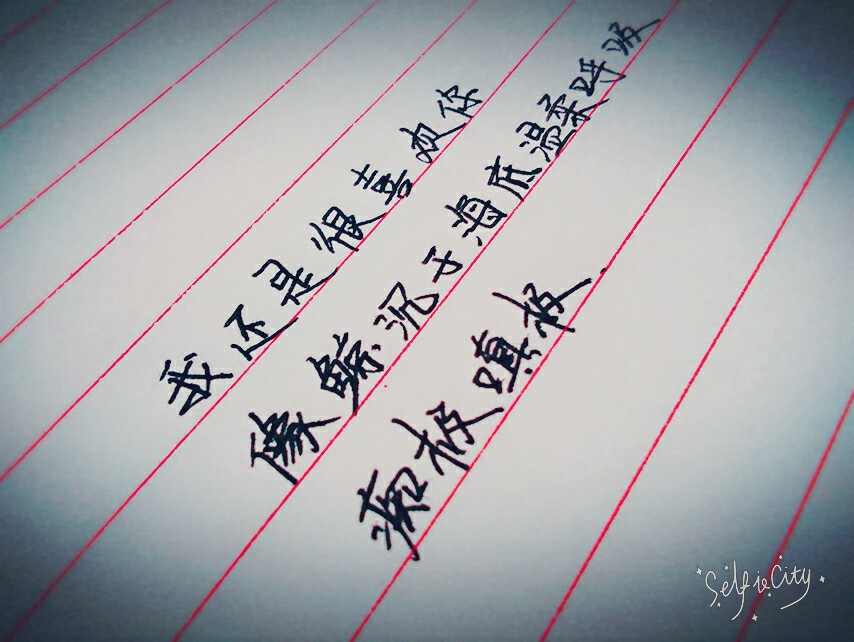 我还是很喜欢你
像鲸沉于海底温柔呼吸
痴极嗔极
Selfie City